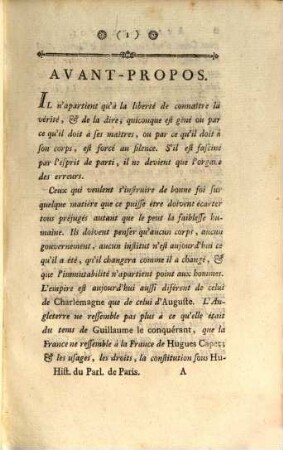 ( 1 )
AVANT-PROPOS.
IL n'apartient qu'à la liberté de connaître la
vérité, & de la dire, quiconque est gêné ou par
ce qu'il doit à ses maîtres, ou par ce qu'il doit à
son corps, est forcé au silence. S'il est fasciné
par l'esprit de parti, il ne devient que l'organe
des erreurs.
Ceux qui veulent s'instruire de bonne foi sur
quelque matière que ce puisse être doivent écarter
tous préjugés autant que le peut la faiblesse hu-
maine. Ils doivent penser qu'aucun corps, aucun
gouvernement, aucun institut n'est aujourd'hui ce
qu'il a été, qu'il changera comme il a changé, &
que l'immutabilité n'apartient point aux hommes.
L'empire est aujourd'hui aussi diférent de celui
de Charlemagne que de celui d'Auguste. L'An-
gleterre ne ressemble pas plus à ce qu'elle était
du tems de Guillaume le conquérant, que la
France ne ressemble à la France de Hugues Capet;
& les usages, les droits, la constitution sous Hu-
Hist. du Parl. de Paris. A